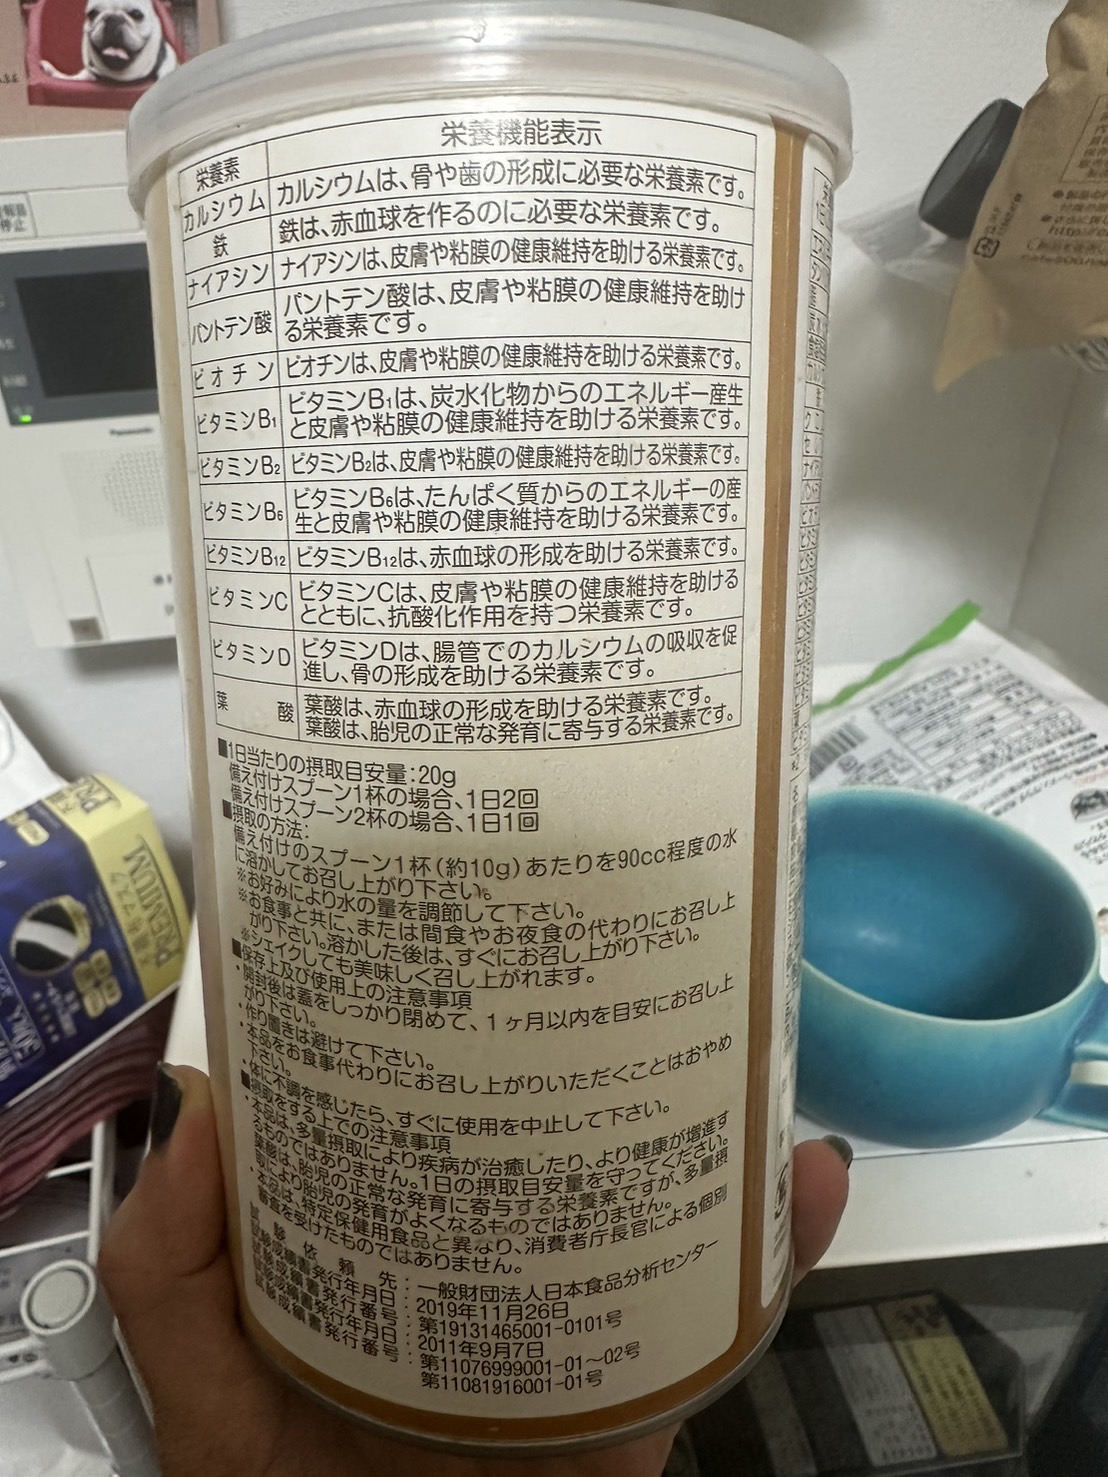 栄養機能表示
栄養素
カルシウム カルシウムは、骨や歯の形成に必要な栄養素です。
鉄 鉄は、赤血球を作るのに必要な栄養素です。
ナイアシン ナイアシンは、皮膚や粘膜の健康維持を助ける栄養素です。
パントテン酸 パントテン酸は、皮膚や粘膜の健康維持を助け
る栄養素です。
ビオチン ビオチンは、皮膚や粘膜の健康維持を助ける栄養素です。
ビタミンB₁ ビタミンB₁は、炭水化物からのエネルギー産生
と皮膚や粘膜の健康維持を助ける栄養素です。
ビタミンB₂ ビタミンB₂は、皮膚や粘膜の健康維持を助ける栄養素です。
ビタミンB₆ ビタミンB₆は、たんぱく質からのエネルギーの産
生と皮膚や粘膜の健康維持を助ける栄養素です。
ビタミンB₁₂ ビタミンB₁₂は、赤血球の形成を助ける栄養素です。
ビタミンC ビタミンCは、皮膚や粘膜の健康維持を助ける
とともに、抗酸化作用を持つ栄養素です。
ビタミンD ビタミンDは、腸管でのカルシウムの吸収を促
進し、骨の形成を助ける栄養素です。
葉酸 葉酸は、赤血球の形成を助ける栄養素です。
葉酸は、胎児の正常な発育に寄与する栄養素です。
■1日当たりの摂取目安量:20g
備え付けスプーン1杯の場合、1日2回
備え付けスプーン2杯の場合、1日1回
■摂取の方法:
備え付けのスプーン1杯(約10g)あたりを90cc程度の水
に溶かしてお召し上がり下さい。
※お好みにより水の量を調節して下さい。
※お食事と共に、または間食やお夜食の代わりにお召し上
がり下さい。溶かした後は、すぐにお召し上がり下さい。
※シェイクしても美味しく召し上がれます。
■保存上及び使用上の注意事項
・開封後は蓋をしっかり閉めて、1ヶ月以内を目安にお召し上
がり下さい。
・作り置きは避けて下さい。
・本品をお食事代わりにお召し上がりいただくことはおやめ
下さい。
・体に不調を感じたら、すぐに使用を中止して下さい。
■摂取をする上での注意事項
・本品は、多量摂取により疾病が治癒したり、より健康が増進す
るものではありません。1日の摂取目安量を守ってください。
葉酸は、胎児の正常な発育に寄与する栄養素ですが、多量摂
取により胎児の発育がよくなるものではありません。
・本品は、特定保健用食品と異なり、消費者庁長官による個別
審査を受けたものではありません。
試験依頼先:一般財団法人日本食品分析センター
試験成績書発行年月日:2019年11月26日
試験成績書発行番号:第19131465001-0101号
試験成績書発行年月日:2011年9月7日
試験成績書発行番号:第11076999001-01～02号
第11081916001-01号
Panasonic
PREMIUM
PREMIUM